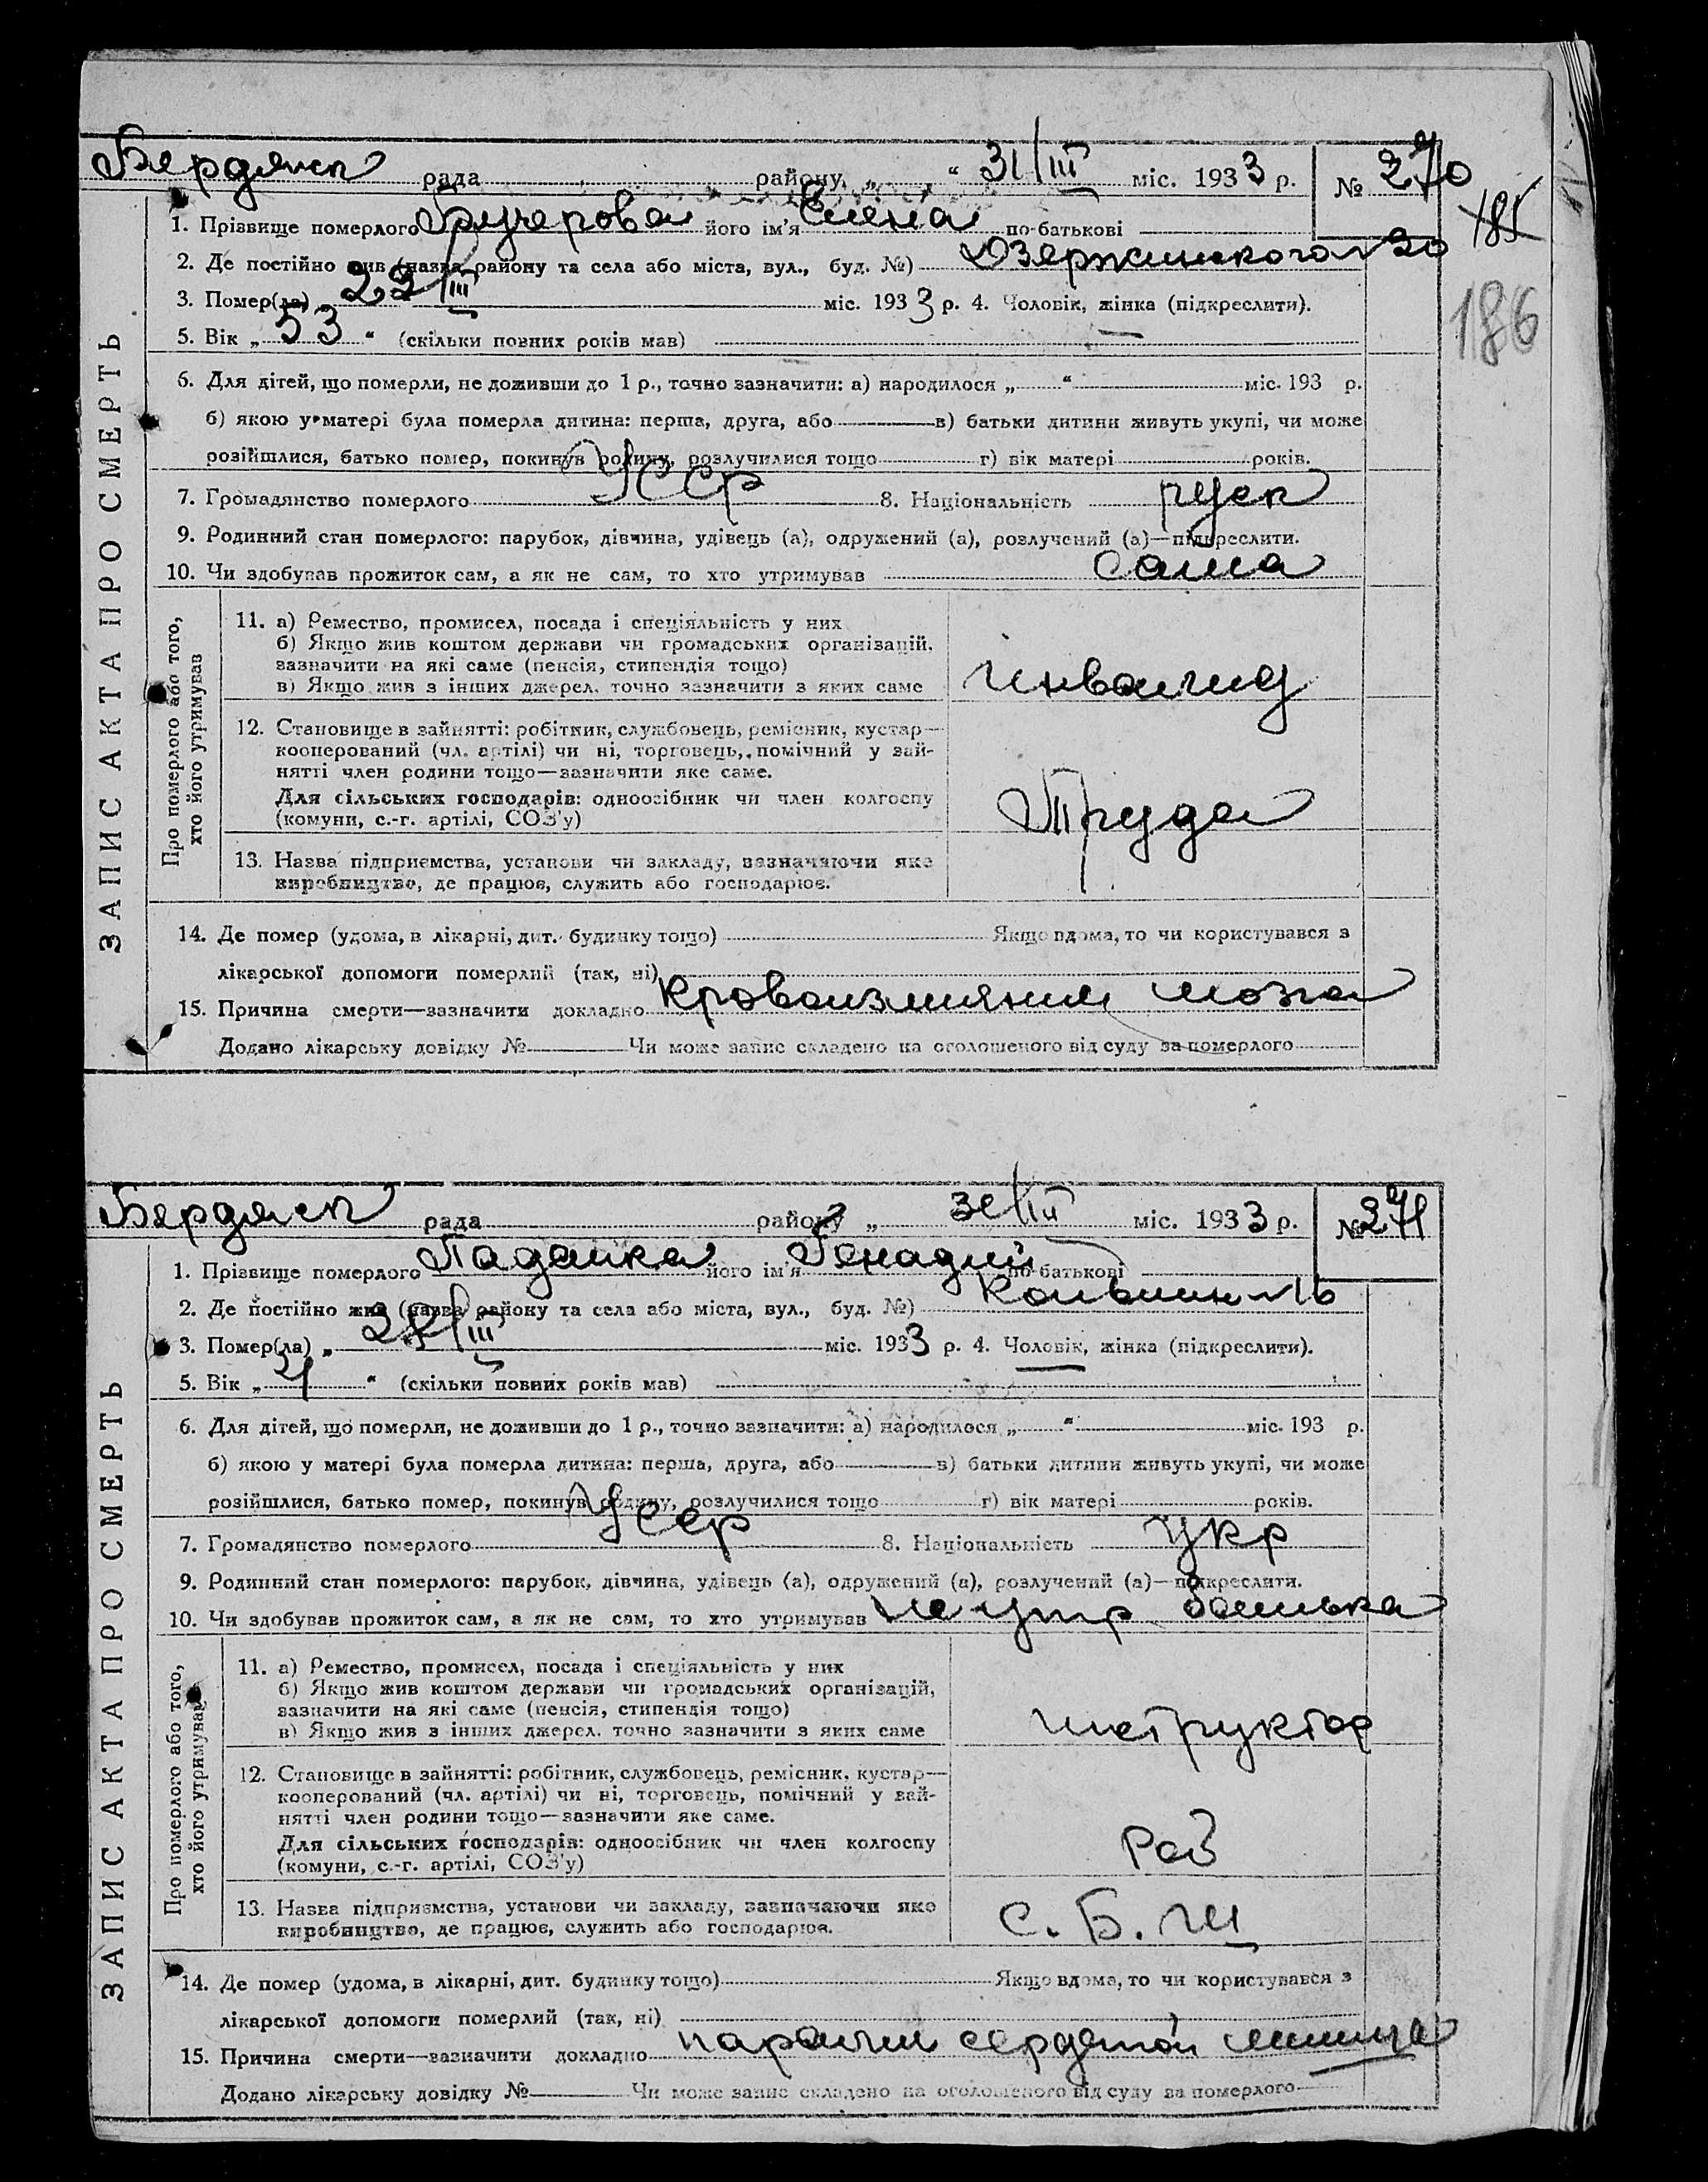 Бердянск рада района „ “ 31/III міс. 1933 р. № 270
185
1. Прізвище померлого Бугерова його ім'я Елена по-батькові
2. Де постійно жив (назва району та села або міста, вул., буд. №) Дзержинского 20
186
3. Помер(ла) 29/III міс. 1933 р. 4. Чоловік, жінка (підкреслити).
5. Вік „ 53 “ (скільки повних років мав)
6. Для дітей, що померли, не доживши до 1 р., точно зазначити: а) народилося „ “ міс. 193 р.
б) якою у матері була померла дитина: перша, друга, або в) батьки дитини живуть укупі, чи може
розійшлися, батько помер, покинув родину, розлучилися тощо г) вік матері років.
7. Громадянство померлого УССР 8. Національність руск
9. Родинний стан померлого: парубок, дівчина, удівець (а), одружений (а), розлучений (а)—підкреслити.
10. Чи здобував прожиток сам, а як не сам, то хто утримував сама
ЗАПИС АКТА ПРО СМЕРТЬ
Про померлого або того,
хто його утримував
11. а) Ремество, промисел, посада і спеціяльність у них
б) Якщо жив коштом держави чи громадських організацій,
зазначити на які саме (пенсія, стипендія тощо)
в) Якщо жив з інших джерел, точно зазначити з яких саме
инвалид
12. Становище в зайнятті: робітник, службовець, ремісник, кустар—
кооперований (чл. артілі) чи ні, торговець, помічний у зай-
нятті член родини тощо—зазначити яке саме.
Для сільських господарів: одноосібник чи член колгоспу
(комуни, с.-г. артілі, СОЗ'у)
Труда
13. Назва підприємства, установи чи закладу, зазначаючи яке
виробництво, де працює, служить або господарює.
14. Де помер (удома, в лікарні, дит. будинку тощо) Якщо вдома, то чи користувався з
лікарської допомоги померлий (так, ні)
15. Причина смерти—зазначити докладно кровоизлияние мозга
Додано лікарську довідку № Чи може запис складено на оголошеного від суду за померлого
Бердянск рада району „ 31/III міс. 1933 р. № 271
1. Прізвище померлого Падалка його ім'я Генадий по-батькові
2. Де постійно жив (назва району та села або міста, вул., буд. №) 16
3. Помер(ла) „ /III міс. 1933 р. 4. Чоловік, жінка (підкреслити).
5. Вік „ 4 “ (скільки повних років мав)
6. Для дітей, що померли, не доживши до 1 р., точно зазначити: а) народилося „ “ міс. 193 р.
б) якою у матері була померла дитина: перша, друга, або в) батьки дитини живуть укупі, чи може
розійшлися, батько помер, покинув родину, розлучилися тощо г) вік матері років.
7. Громадянство померлого УССР 8. Національність укр
9. Родинний стан померлого: парубок, дівчина, удівець (а), одружений (а), розлучений (а)—підкреслити.
10. Чи здобував прожиток сам, а як не сам, то хто утримував утр батька
ЗАПИС АКТА ПРО СМЕРТЬ
Про померлого або того,
хто його утримував
11. а) Ремество, промисел, посада і спеціяльність у них
б) Якщо жив коштом держави чи громадських організацій,
зазначити на які саме (пенсія, стипендія тощо)
в) Якщо жив з інших джерел, точно зазначити з яких саме
инструктор
12. Становище в зайнятті: робітник, службовець, ремісник, кустар—
кооперований (чл. артілі) чи ні, торговець, помічний у зай-
нятті член родини тощо—зазначити яке саме.
Для сільських господарів: одноосібник чи член колгоспу
(комуни, с.-г. артілі, СОЗ'у)
Раб
13. Назва підприємства, установи чи закладу, зазначаючи яке
виробництво, де працює, служить або господарює.
С. Б. Ш
14. Де помер (удома, в лікарні, дит. будинку тощо) Якщо вдома, то чи користувався з
лікарської допомоги померлий (так, ні)
15. Причина смерти—зазначити докладно паралич сердечной мышцы
Додано лікарську довідку № Чи може запис складено на оголошеного від суду за померлого